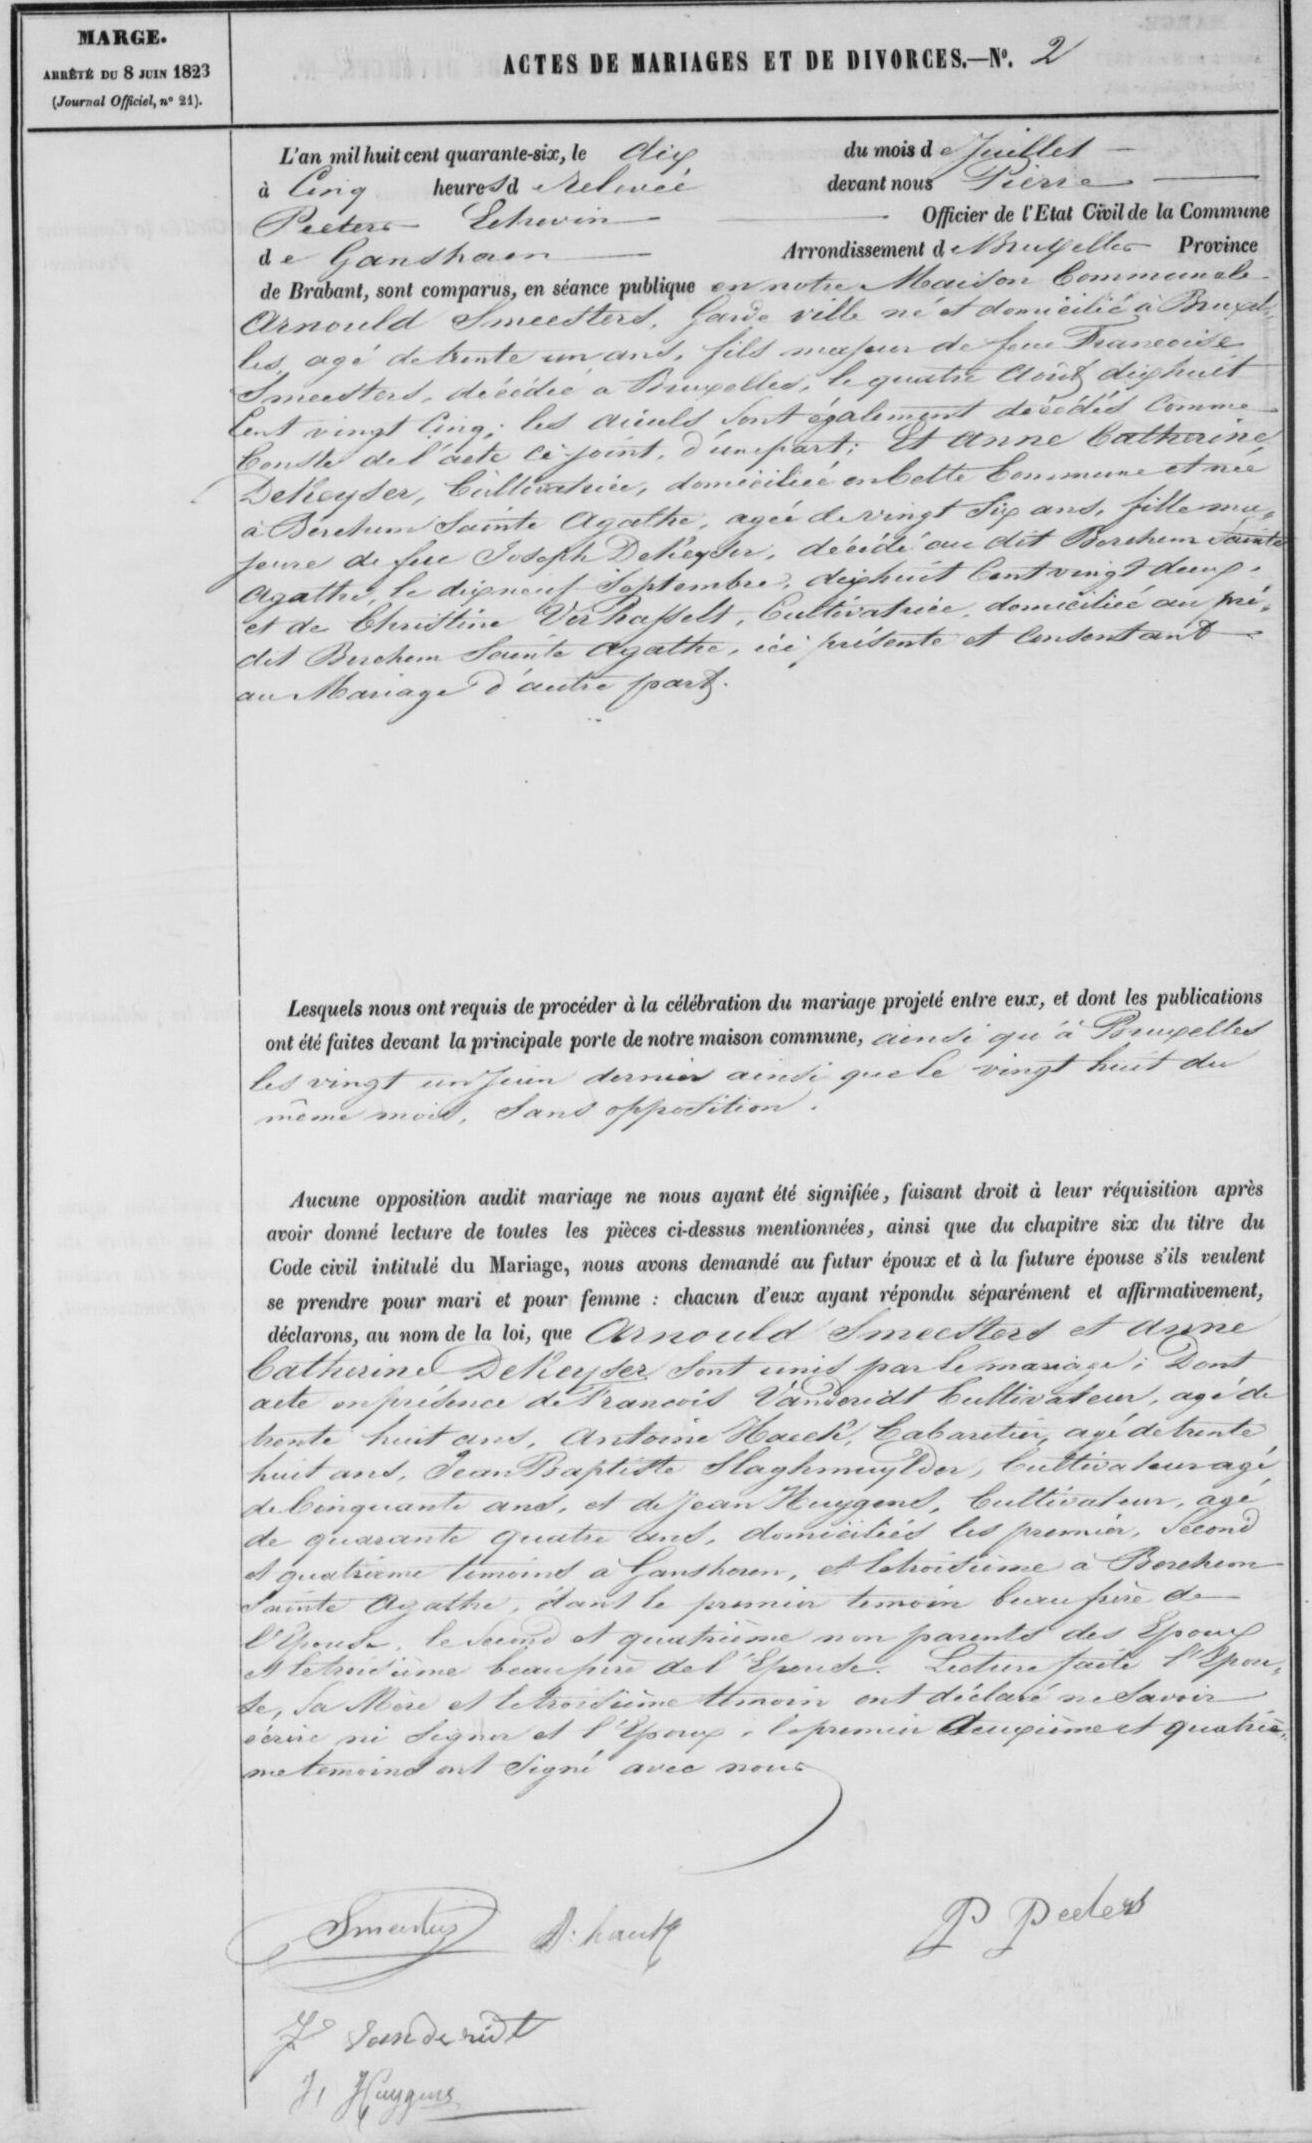 MARGE.
ARRÊTÉ DU 8 JUIN 1823
(Journal Officiel, n° 21).
ACTES DE MARIAGES ET DE DIVORCES.—N°. 2
L'an mil huit cent quarante-six, le dix du mois de Juillet
à Cinq heures de Relevée devant nous Pierre
Peeters Echevin Officier de l'Etat Civil de la Commune
de Ganshoren Arrondissement de Bruxelles Province
de Brabant, sont comparus, en séance publique en notre Maison Communale
Arnould Smeesters, Garde ville né et domicilié à Bruxel-
les, agé de trente un ans, fils majeur de feue Francoise
Smeesters, décédée à Bruxelles, le quatre Août dixhuit
Cent vingt Cinq; les aïeuls sont également décédés Comme
Conste de l'acte ci-joint, d'une part; Et Anne Catherine
DeKeyser, Cultivatrice, domiciliée en Cette Commune et née
à Berchem Sainte Agathe, agée de vingt six ans, fille ma-
jeure de feu Joseph DeKeyser, décédé au dit Berchem Sainte
Agathe, le dixneuf Septembre, dixhuit Cent vingt deux.
et de Christine VerHasselt, Cultivatrice, domiciliée au pré-
dit Berchem Sainte Agathe, ici présente et Consentant
au Mariage d'autre part.
Lesquels nous ont requis de procéder à la célébration du mariage projeté entre eux, et dont les publications
ont été faites devant la principale porte de notre maison commune, ainsi qu'à Bruxelles
les vingt un Juin dernier ainsi que le vingt huit du
même mois, Sans opposition.
Aucune opposition audit mariage ne nous ayant été signifiée, faisant droit à leur réquisition après
avoir donné lecture de toutes les pièces ci-dessus mentionnées, ainsi que du chapitre six du titre du
Code civil intitulé du Mariage, nous avons demandé au futur époux et à la future épouse s'ils veulent
se prendre pour mari et pour femme : chacun d'eux ayant répondu séparément et affirmativement,
déclarons, au nom de la loi, que Arnould Smeesters et Anne
Catherine DeKeyser sont unis par le mariage; Dont
acte en présence de Francois Vanderidt Cultivateur, agé de
trente huit ans, Antoine Haeck, Cabaretier, agé de trente
huit ans, Jean Baptiste Slaghmuylder, Cultivateur agé
de Cinquante ans, et de Jean Huygens, Cultivateur, agé
de quarante quatre ans, domiciliés les premier, Second
et quatrième temoins à Ganshoren, et le troisième à Berchem
Sainte Agathe, étant le premier temoin beau frère de
l'Epouse, le Second et quatrième non parents des Epoux
et le troisième beau père de l'Epouse. Lecture faite l'Epou-
se, Sa Mère et le troisième temoin ont déclaré ne Savoir
écrire ni Signer et l'Epoux, le premier deuxième et quatriè-
me temoins ont Signé avec nous
Smeesters
P Peeters
F Vanderidt
J, Huygens